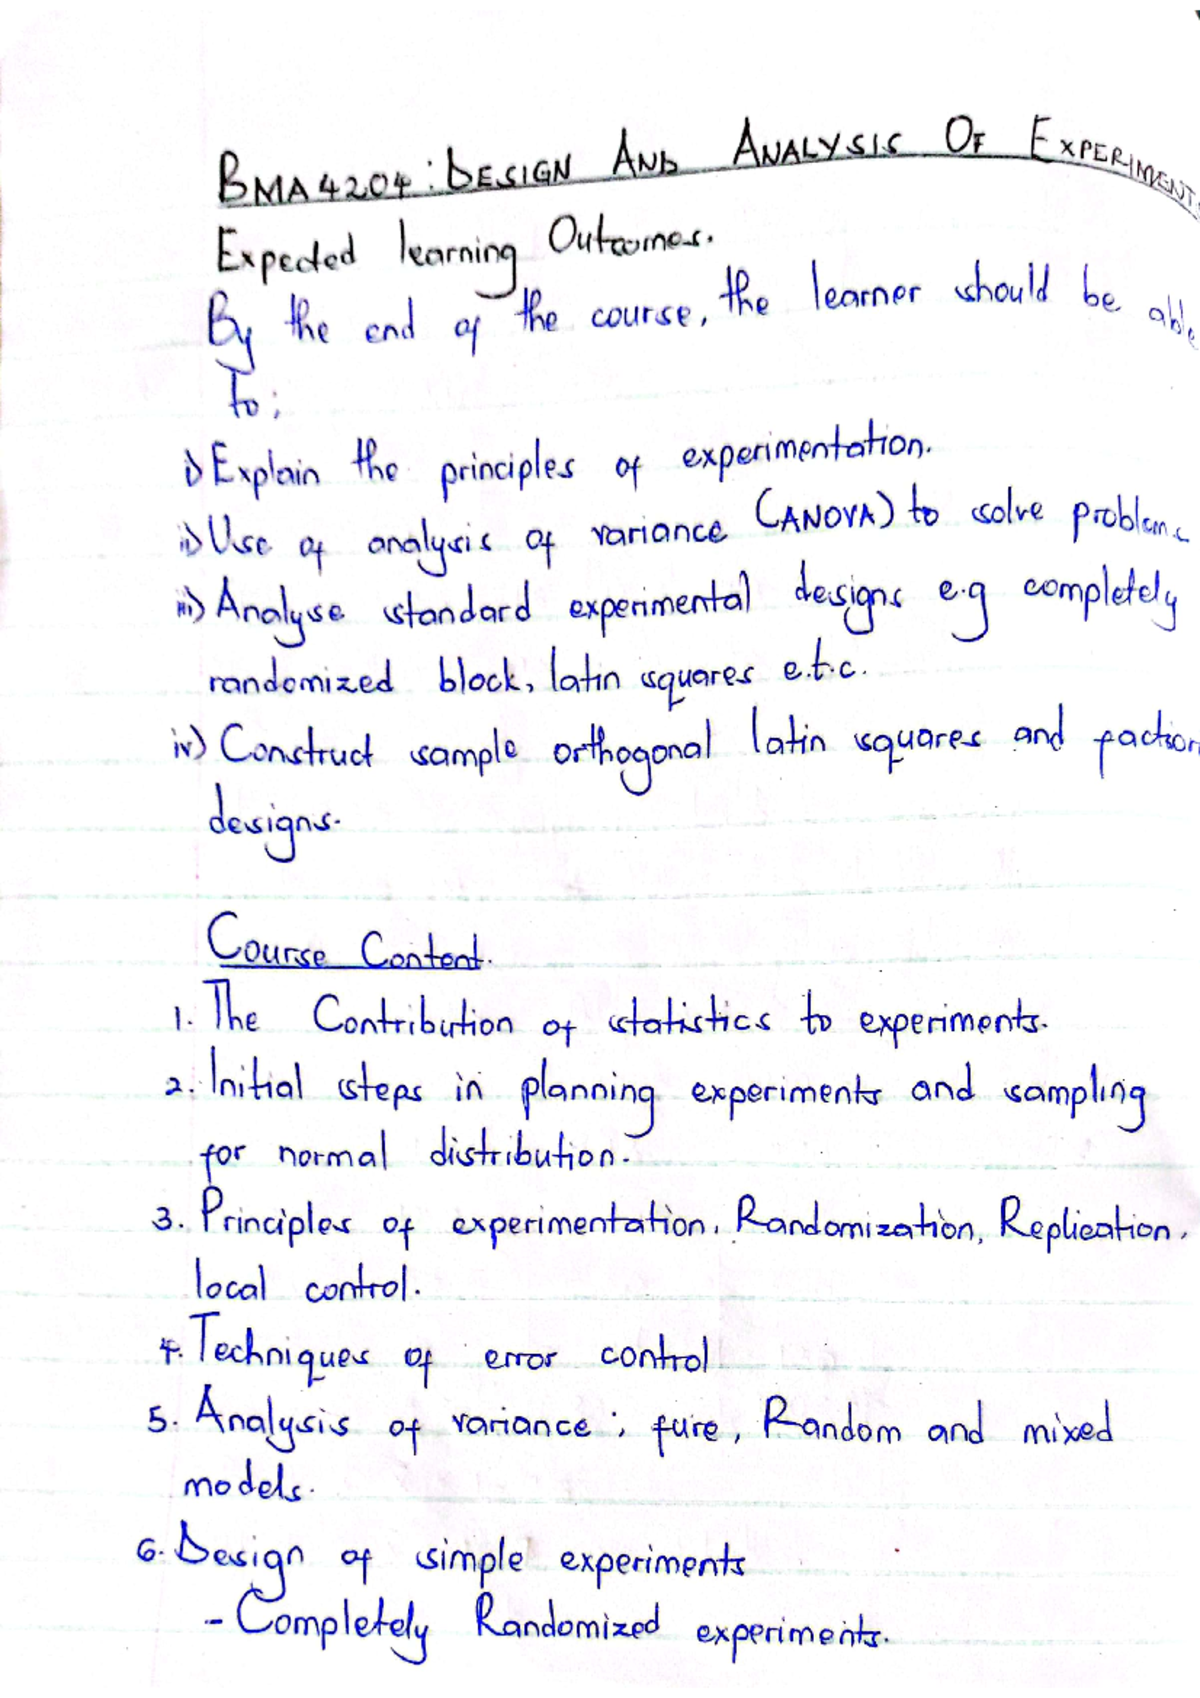 BMA 4204: DESIGN AND ANALYSIS OF EXPERIMENTS
Expected learning Outcomes.
By the end of the course, the learner should be able
to;
i) Explain the principles of experimentation.
ii) Use of analysis of variance (ANOVA) to solve problems
iii) Analyse standard experimental designs e.g completely
randomized block, latin squares e.t.c.
iv) Construct sample orthogonal latin squares and faction
designs.
Course Content.
1. The Contribution of statistics to experiments.
2. Initial steps in planning experiments and sampling
for normal distribution.
3. Principles of experimentation. Randomization, Replication,
local control.
4. Techniques of error control
5. Analysis of variance; fure, Random and mixed
models.
6. Design of simple experiments
- Completely Randomized experiments.